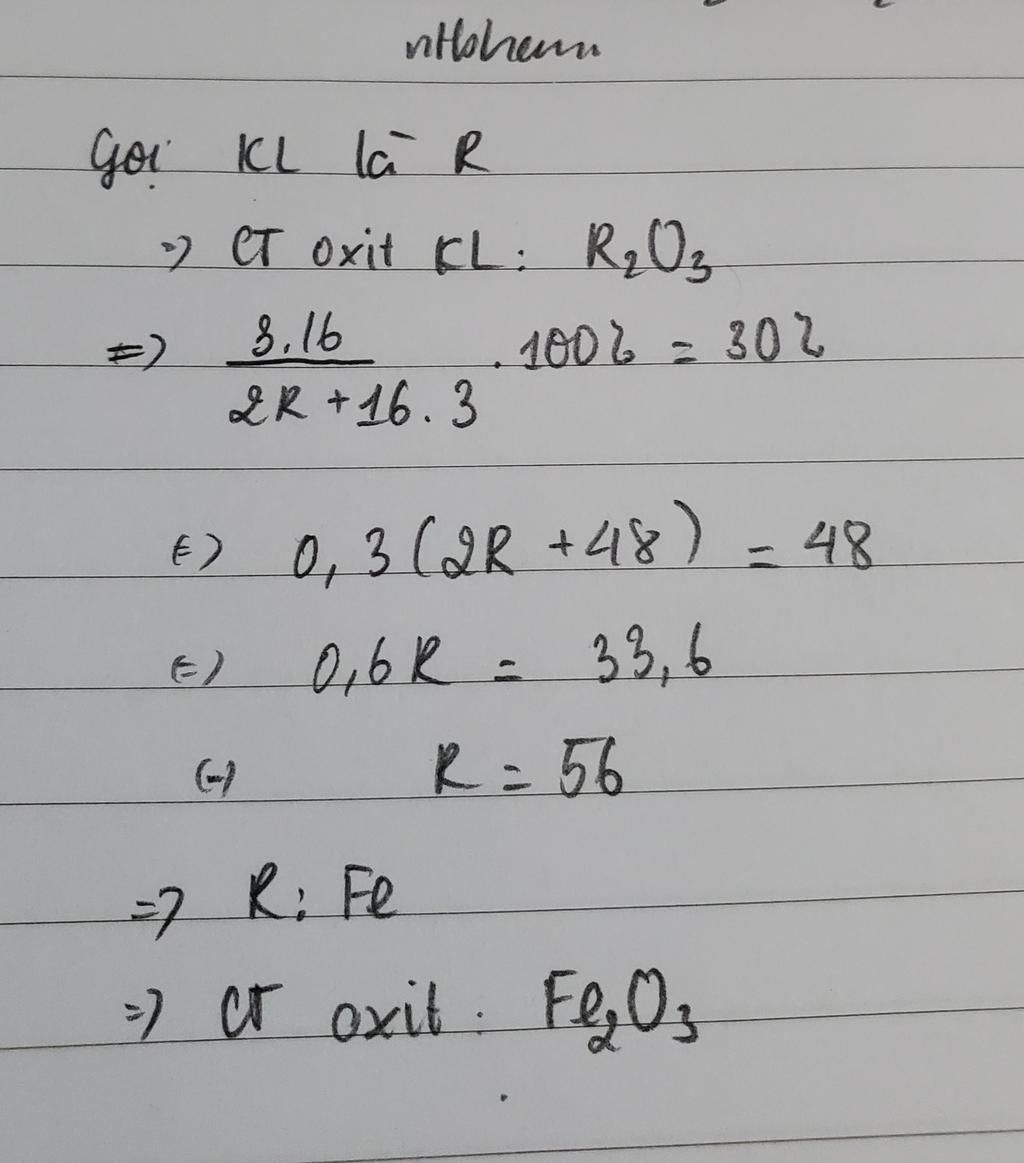 Gọi KL là R
=> CT oxit KL: R₂O₃
=> 3.16 / (2R + 16.3) . 100% = 30%
(=) 0,3(2R + 48) = 48
(=) 0,6R = 33,6
(=) R = 56
=> R: Fe
=> CT oxit: Fe₂O₃